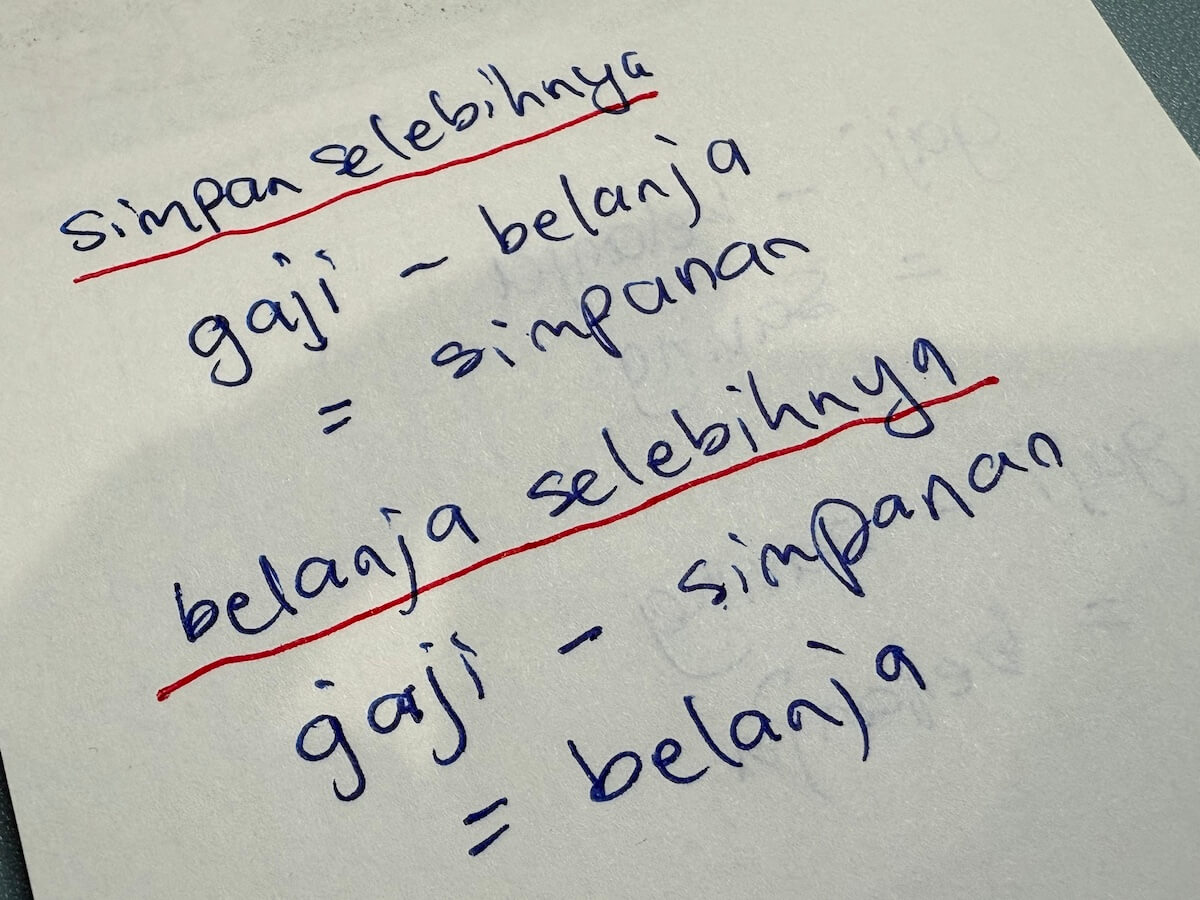 simpan selebihnya
gaji - belanja
= simpanan
belanja selebihnya
gaji - simpanan
= belanja